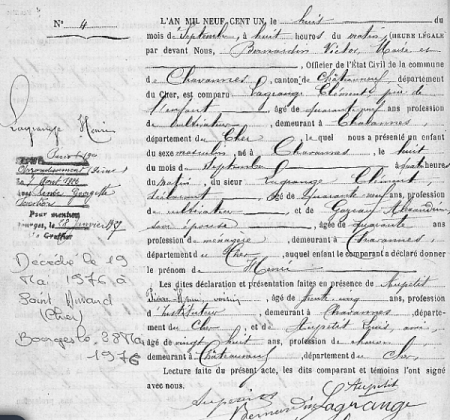 N° 4
L'AN MIL NEUF-CENT UN, le huit du
mois de Septembre, à huit heures du matin, (HEURE LÉGALE)
par devant Nous, Bernardin Victor, Maire et
, Officier de l'État Civil de la commune
de Chavannes, canton de Châteauneuf, département
du Cher, est comparu Lagrange Clément, père de
l'enfant, âgé de quarante neuf ans, profession
de cultivateur, demeurant à Chavannes,
département du Cher, lequel nous a présenté un enfant
du sexe masculin, né à Chavannes, le huit
du mois de Septembre à quatre heures
du matin, du sieur Lagrange Clément
déclarant, âgé de quarante neuf ans, profession
de cultivateur et de
son épouse, âgée de quarante
ans, profession de ménagère, demeurant à Chavannes,
département du Cher, auquel enfant le comparant a déclaré donner
le prénom de Henri
Les dites déclaration et présentation faites en présence de Aupetit
voisin, âgé de trente cinq ans, profession
d'instituteur, demeurant à Chavannes, départe-
ment du Cher, et de Aupetit Louis, ami,
âgé de vingt huit ans, profession de maçon,
demeurant à Châteauneuf, département du Cher,
Lecture faite du présent acte, les dits comparant et témoins l'ont signé
avec nous.
Aupetit
Aupetit
Bernardin
Lagrange
Lagrange Henri
Pour mention
Bourges, le 28 Janvier 1927
Le Greffier
Décédé le 19
Mai 1976 à
Saint Amand
(Cher)
Bourges le, 28 Mai
1976